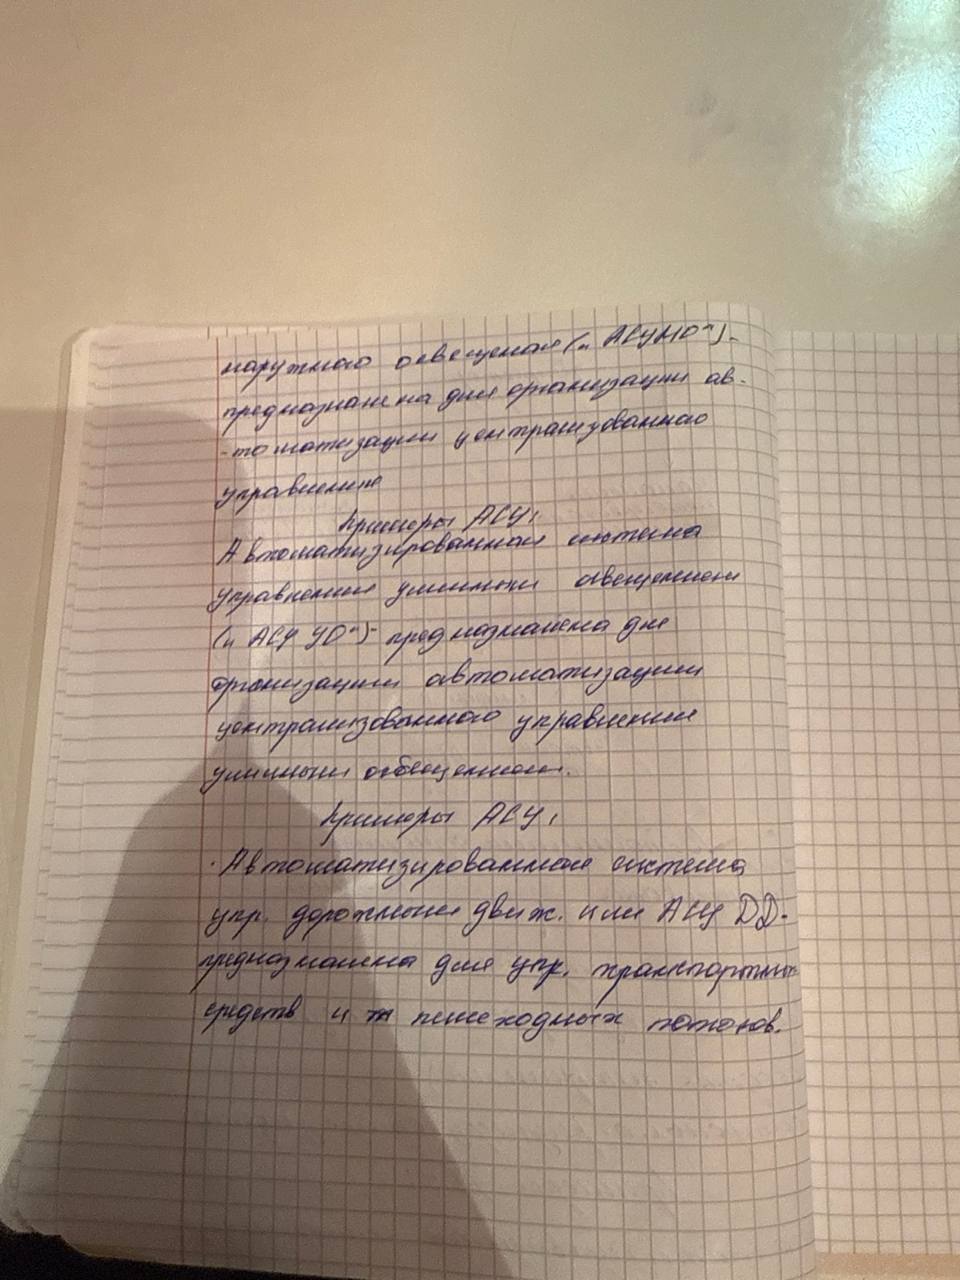 наружного освещения („АСУНО")-
предназначена для организации ав-
-томатизации централизованного
управления
Примеры АСУ,
Автоматизированная система
управления уличным освещением
(„АСУ УО")- предназначена для
организации автоматизации
централизованного управления
уличным освещением.
Примеры АСУ,
· Автоматизированная система
упр. дорожным движ. или АСУ ДД-
предназначена для упр. транспортных
средств и пешеходных потоков.